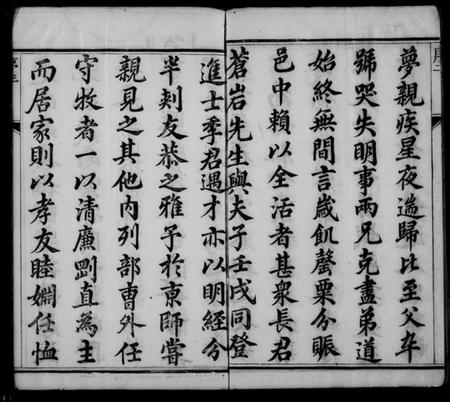 夢親疾星夜遄歸比至父卒
號哭失明事兩兄克盡弟道
始終無間言歲飢罄粟分賑
邑中賴以全活者甚衆長君
蒼岩先生與夫子壬戌同登
進士季君遇才亦以明經分
半刺友恭之雅予於京師嘗
親見之其他內列部曹外任
守牧者一以清廉剛直為主
而居家則以孝友睦婣任恤